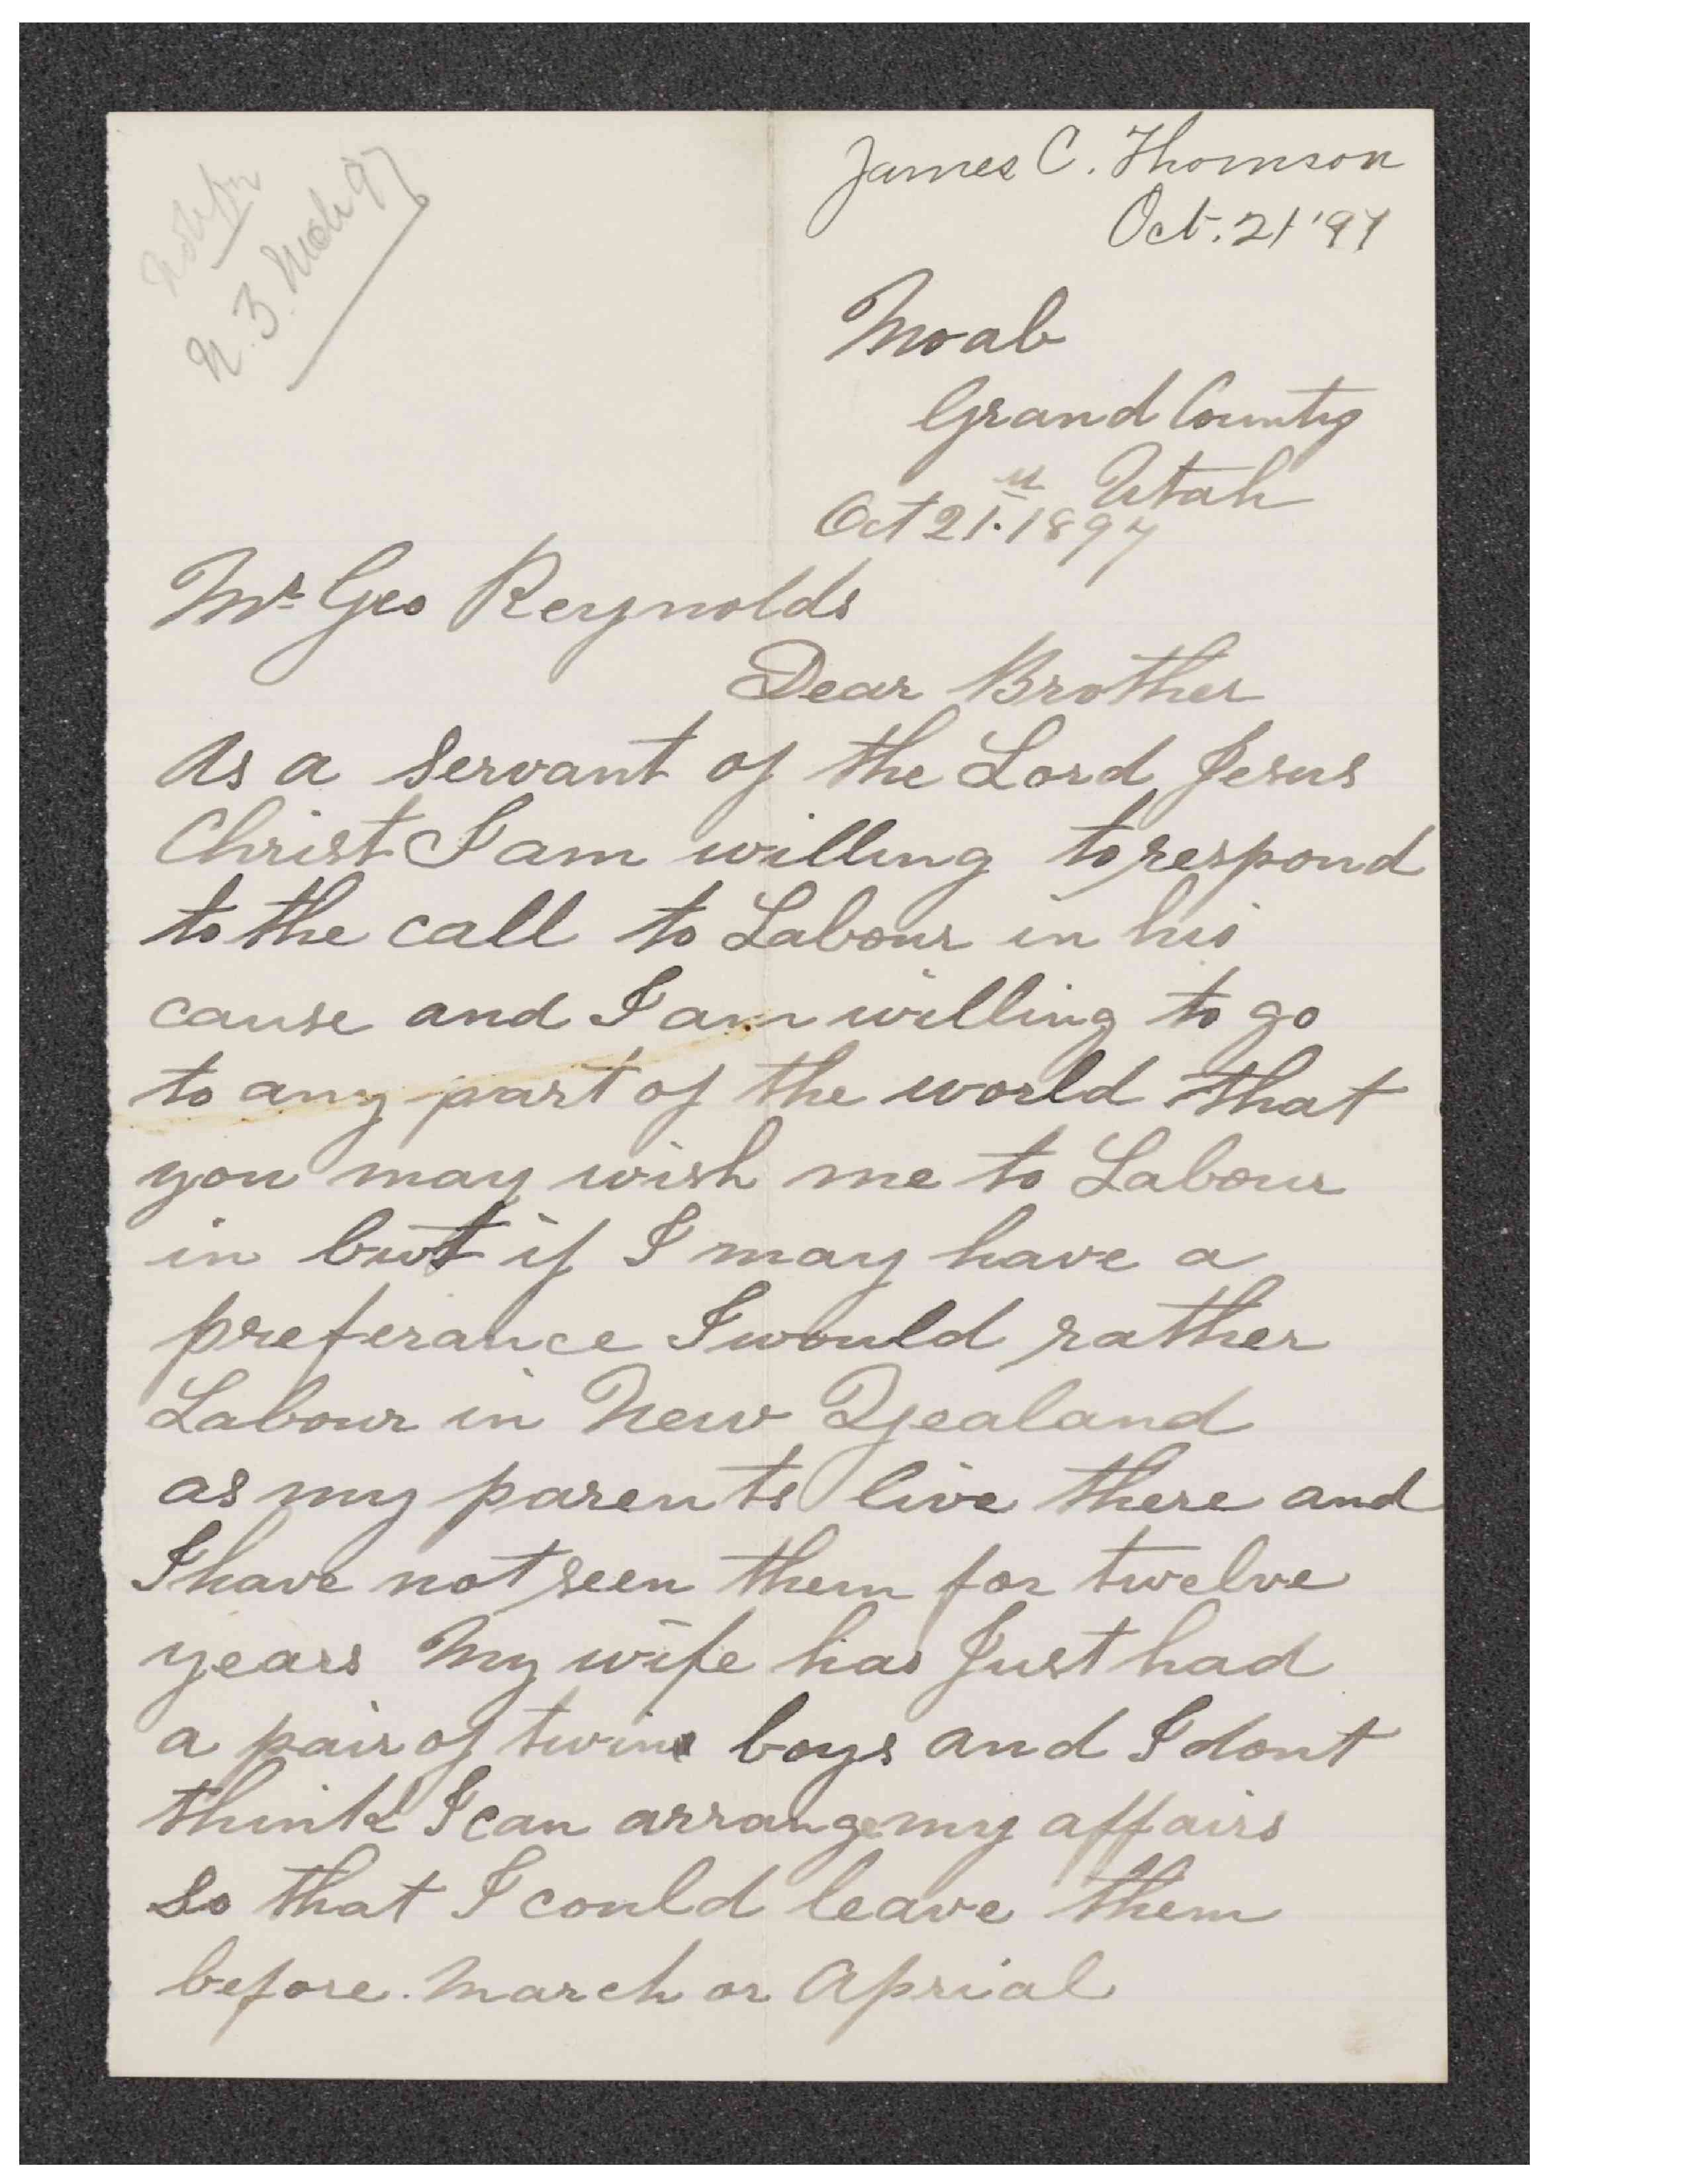 James C. Thomson
Oct. 21 '97
Moab
Grand County
Utah
Oct 21. 1897
Mr Geo Reynolds
Dear Brother
As a servant of the Lord Jesus
Christ I am willing to respond
to the call to Labour in his
cause and I am willing to go
to any part of the world that
you may wish me to Labour
in but if I may have a
preferance I would rather
Labour in New Zealand
as my parents live there and
I have not seen them for twelve
years My wife has Just had
a pair of twins boys and I dont
think I can arrange my affairs
so that I could leave them
before. March or Aprial